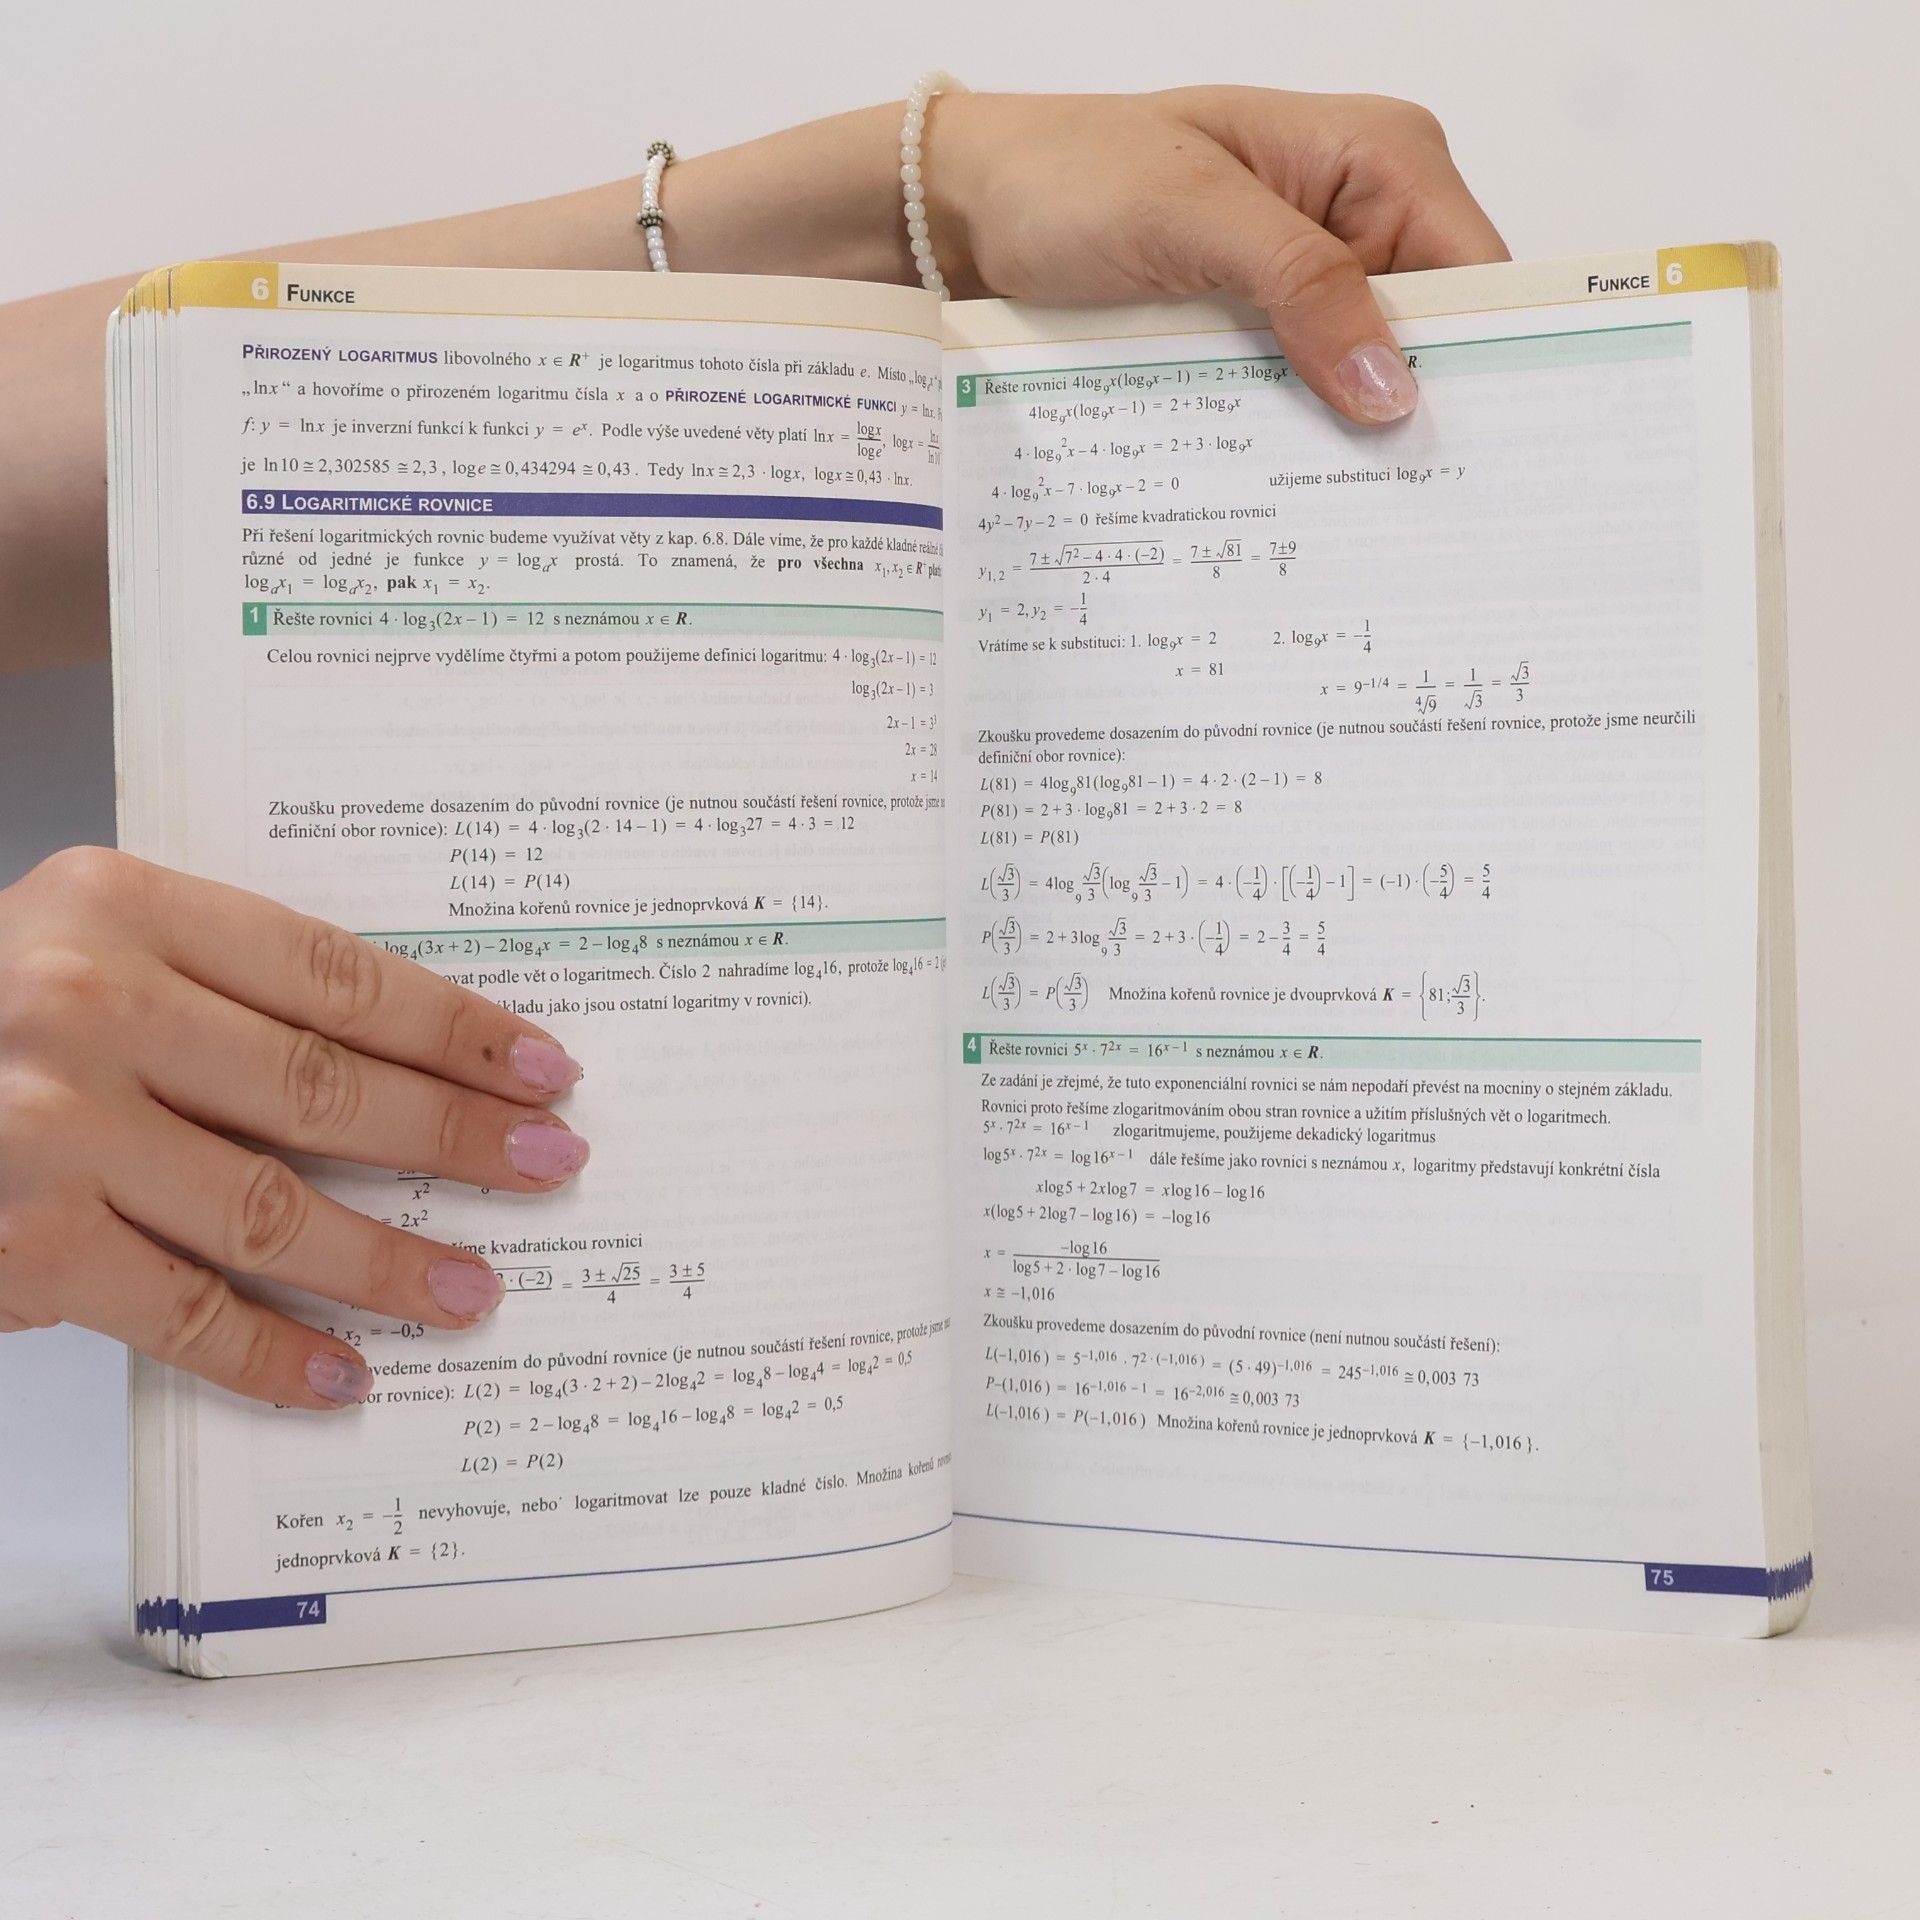 6 FUNKCE
PŘIROZENÝ LOGARITMUS libovolného x ∈ R⁺ je logaritmus tohoto čísla při základu e. Místo
„lnx“ a hovoříme o přirozeném logaritmu čísla x a o PŘIROZENÉ LOGARITMICKÉ FUNKCI y = lnx.
f: y = lnx je inverzní funkcí k funkci y = eˣ. Podle výše uvedené věty platí lnx = logx/loge, logx =
je ln10 ≅ 2,302585 ≅ 2,3, loge ≅ 0,434294 ≅ 0,43. Tedy lnx ≅ 2,3 · logx, logx ≅ 0,43 · lnx.
6.9 LOGARITMICKÉ ROVNICE
Při řešení logaritmických rovnic budeme využívat věty z kap. 6.8. Dále víme, že pro každé kladné reálné
různé od jedné je funkce y = logₐx prostá. To znamená, že pro všechna x₁, x₂ ∈ R⁺
logₐx₁ = logₐx₂, pak x₁ = x₂.
1 Řešte rovnici 4 · log₃(2x – 1) = 12 s neznámou x ∈ R.
Celou rovnici nejprve vydělíme čtyřmi a potom použijeme definici logaritmu: 4 · log₃(2x – 1) = 12
log₃(2x – 1) = 3
2x – 1 = 3³
2x = 28
x = 14
Zkoušku provedeme dosazením do původní rovnice (je nutnou součástí řešení rovnice, protože jsme
definiční obor rovnice): L(14) = 4 · log₃(2 · 14 – 1) = 4 · log₃27 = 4 · 3 = 12
P(14) = 12
L(14) = P(14)
Množina kořenů rovnice je jednoprvková K = {14}.
log₄(3x + 2) – 2log₄x = 2 – log₄8 s neznámou x ∈ R.
podle vět o logaritmech. Číslo 2 nahradíme log₄16, protože log₄16 = 2
jako jsou ostatní logaritmy v rovnici).
x²
= 2x²
kvadratickou rovnici
· (–2) = (3 ± √25)/4 = (3 ± 5)/4
x₂ = –0,5
dosazením do původní rovnice (je nutnou součástí řešení rovnice, protože jsme
rovnice): L(2) = log₄(3 · 2 + 2) – 2log₄2 = log₄8 – log₄4 = log₄2 = 0,5
P(2) = 2 – log₄8 = log₄16 – log₄8 = log₄2 = 0,5
L(2) = P(2)
Kořen x₂ = –1/2 nevyhovuje, nebo˙ logaritmovat lze pouze kladné číslo. Množina kořenů
jednoprvková K = {2}.
74
FUNKCE 6
3 Řešte rovnici 4log₉x(log₉x – 1) = 2 + 3log₉x R.
4log₉x(log₉x – 1) = 2 + 3log₉x
4 · log₉²x – 4 · log₉x = 2 + 3 · log₉x
4 · log₉²x – 7 · log₉x – 2 = 0 užijeme substituci log₉x = y
4y² – 7y – 2 = 0 řešíme kvadratickou rovnici
y₁,₂ = (7 ± √(7² – 4 · 4 · (–2)))/(2 · 4) = (7 ± √81)/8 = (7±9)/8
y₁ = 2, y₂ = –1/4
Vrátíme se k substituci: 1. log₉x = 2 2. log₉x = –1/4
x = 81 x = 9^(–1/4) = 1/⁴√9 = 1/√3 = √3/3
Zkoušku provedeme dosazením do původní rovnice (je nutnou součástí řešení rovnice, protože jsme neurčili
definiční obor rovnice):
L(81) = 4log₉81(log₉81 – 1) = 4 · 2 · (2 – 1) = 8
P(81) = 2 + 3 · log₉81 = 2 + 3 · 2 = 8
L(81) = P(81)
L(√3/3) = 4log₉ √3/3 (log₉ √3/3 – 1) = 4 · (–1/4) · [(–1/4) – 1] = (–1) · (–5/4) = 5/4
P(√3/3) = 2 + 3log₉ √3/3 = 2 + 3 · (–1/4) = 2 – 3/4 = 5/4
L(√3/3) = P(√3/3) Množina kořenů rovnice je dvouprvková K = {81; √3/3}.
4 Řešte rovnici 5ˣ · 7²ˣ = 16ˣ⁻¹ s neznámou x ∈ R.
Ze zadání je zřejmé, že tuto exponenciální rovnici se nám nepodaří převést na mocniny o stejném základu.
Rovnici proto řešíme zlogaritmováním obou stran rovnice a užitím příslušných vět o logaritmech.
5ˣ · 7²ˣ = 16ˣ⁻¹ zlogaritmujeme, použijeme dekadický logaritmus
log5ˣ · 7²ˣ = log16ˣ⁻¹ dále řešíme jako rovnici s neznámou x, logaritmy představují konkrétní čísla
xlog5 + 2xlog7 = xlog16 – log16
x(log5 + 2log7 – log16) = –log16
x = –log16/(log5 + 2 · log7 – log16)
x ≅ –1,016
Zkoušku provedeme dosazením do původní rovnice (není nutnou součástí řešení):
L(–1,016) = 5^(–1,016) · 7^(2 · (–1,016)) = (5 · 49)^(–1,016) = 245^(–1,016) ≅ 0,003 73
P–(1,016) = 16^(–1,016 – 1) = 16^(–2,016) ≅ 0,003 73
L(–1,016) = P(–1,016) Množina kořenů rovnice je jednoprvková K = {–1,016}.
75